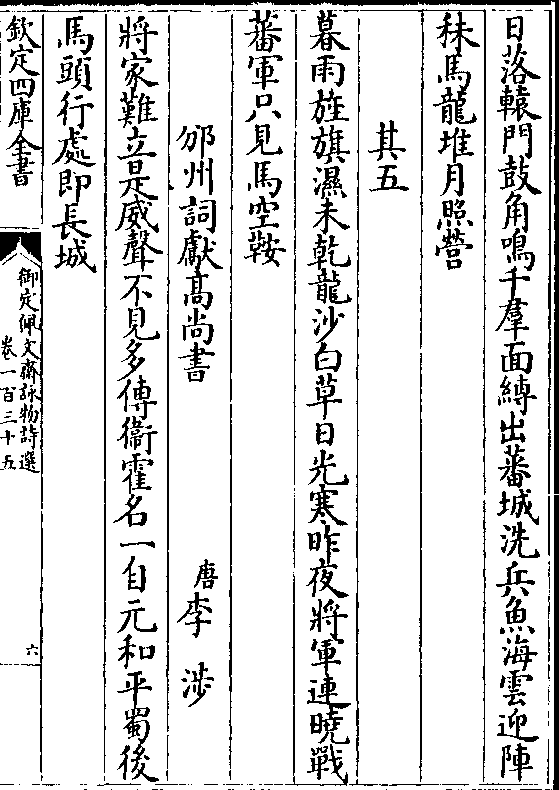 日落轅門鼓角鳴千羣面縛出蕃城洗兵魚海雲迎陣
秣馬龍堆月照營
其五
暮雨旌旗濕未乾龍沙白草日光寒昨夜將軍連曉戰
蕃軍只見馬空鞍
邠州詞獻髙尚書
唐李渉
將家難立是威聲不見多傳衞霍名一自元和平蜀後
馬頭行處即長城
欽定四庫全書
御定佩文齋詠物詩選
卷一百三十五
六